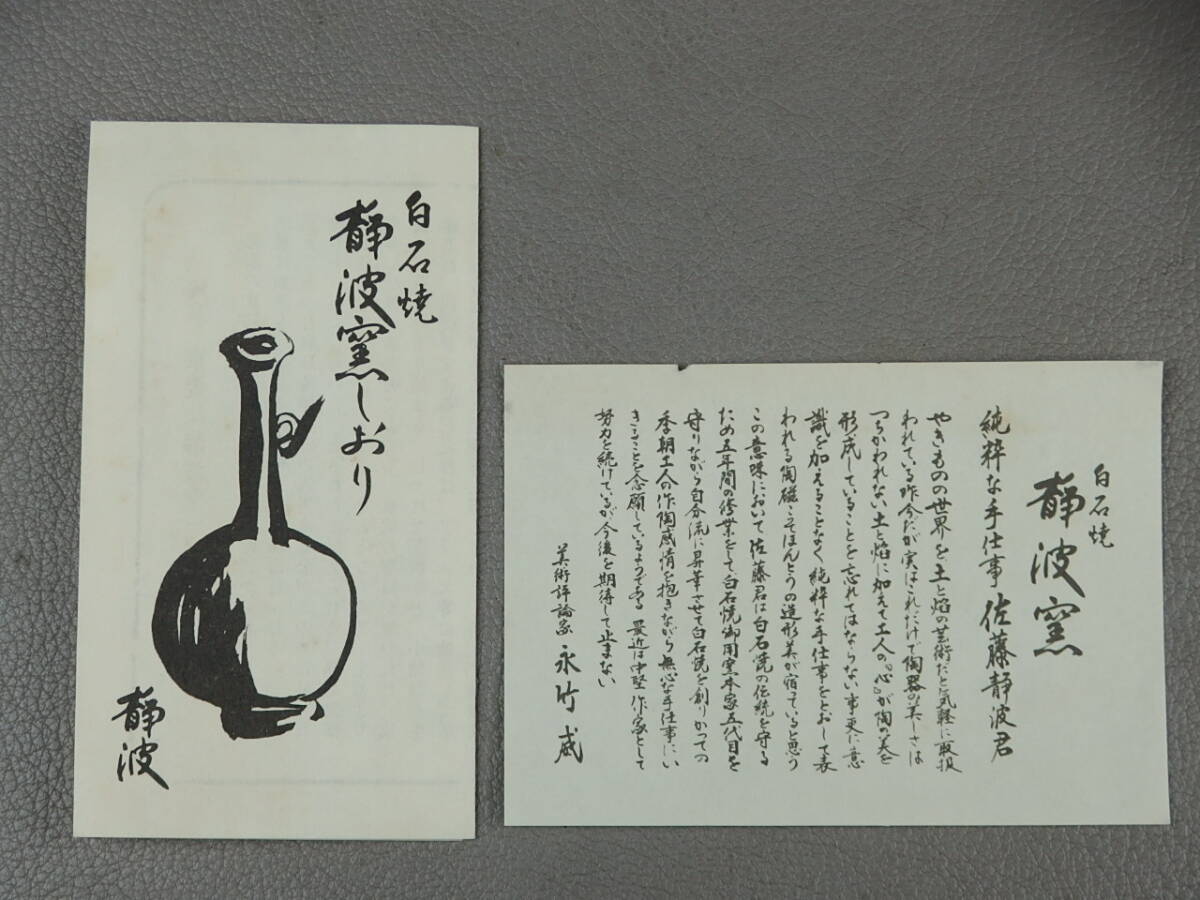 白石焼
静波窯しおり
静波
白石焼
静波窯
純粋な手仕事 佐藤静波君
やきものの世界を土と焰の芸術だと気軽に取扱
われている昨今だが実はそれだけで陶器の美しさは
つちかわれない土と焰に加えて工人の『心』が陶の美を
形成していることを忘れてはならない事更に意
識を加えることなく純粋な手仕事をとおして表
われる陶磁こそほんとうの造形美が宿っていると思う
この意味において佐藤君は白石焼の伝統を守る
ため五年間の修業をして白石焼御用窯本家五代目を
守りながら自分流に昇華させて白石焼を創りかっての
李朝工人の作陶感情を抱きながら無心な手仕事にい
きることを念願しているようである 最近は中堅作家として
努力を続けているが今後を期待して止まない
美術評論家 永竹威